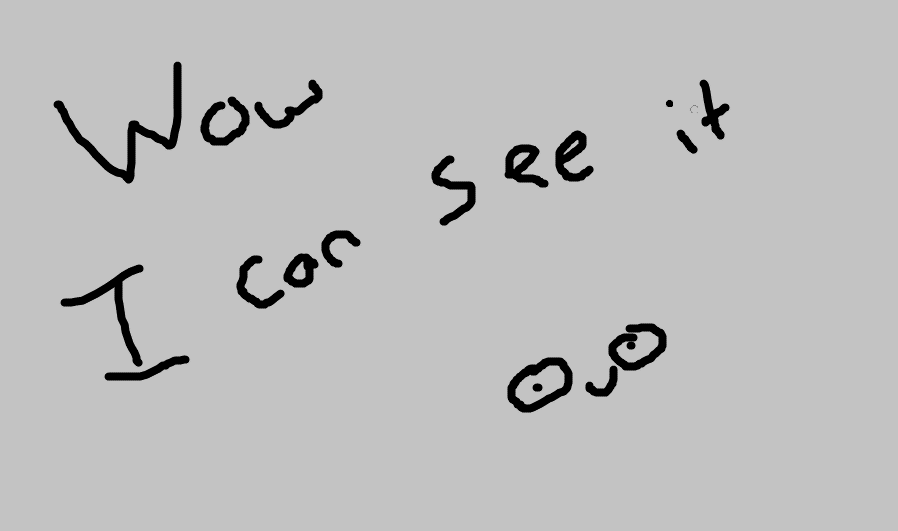 Wow
I can see it